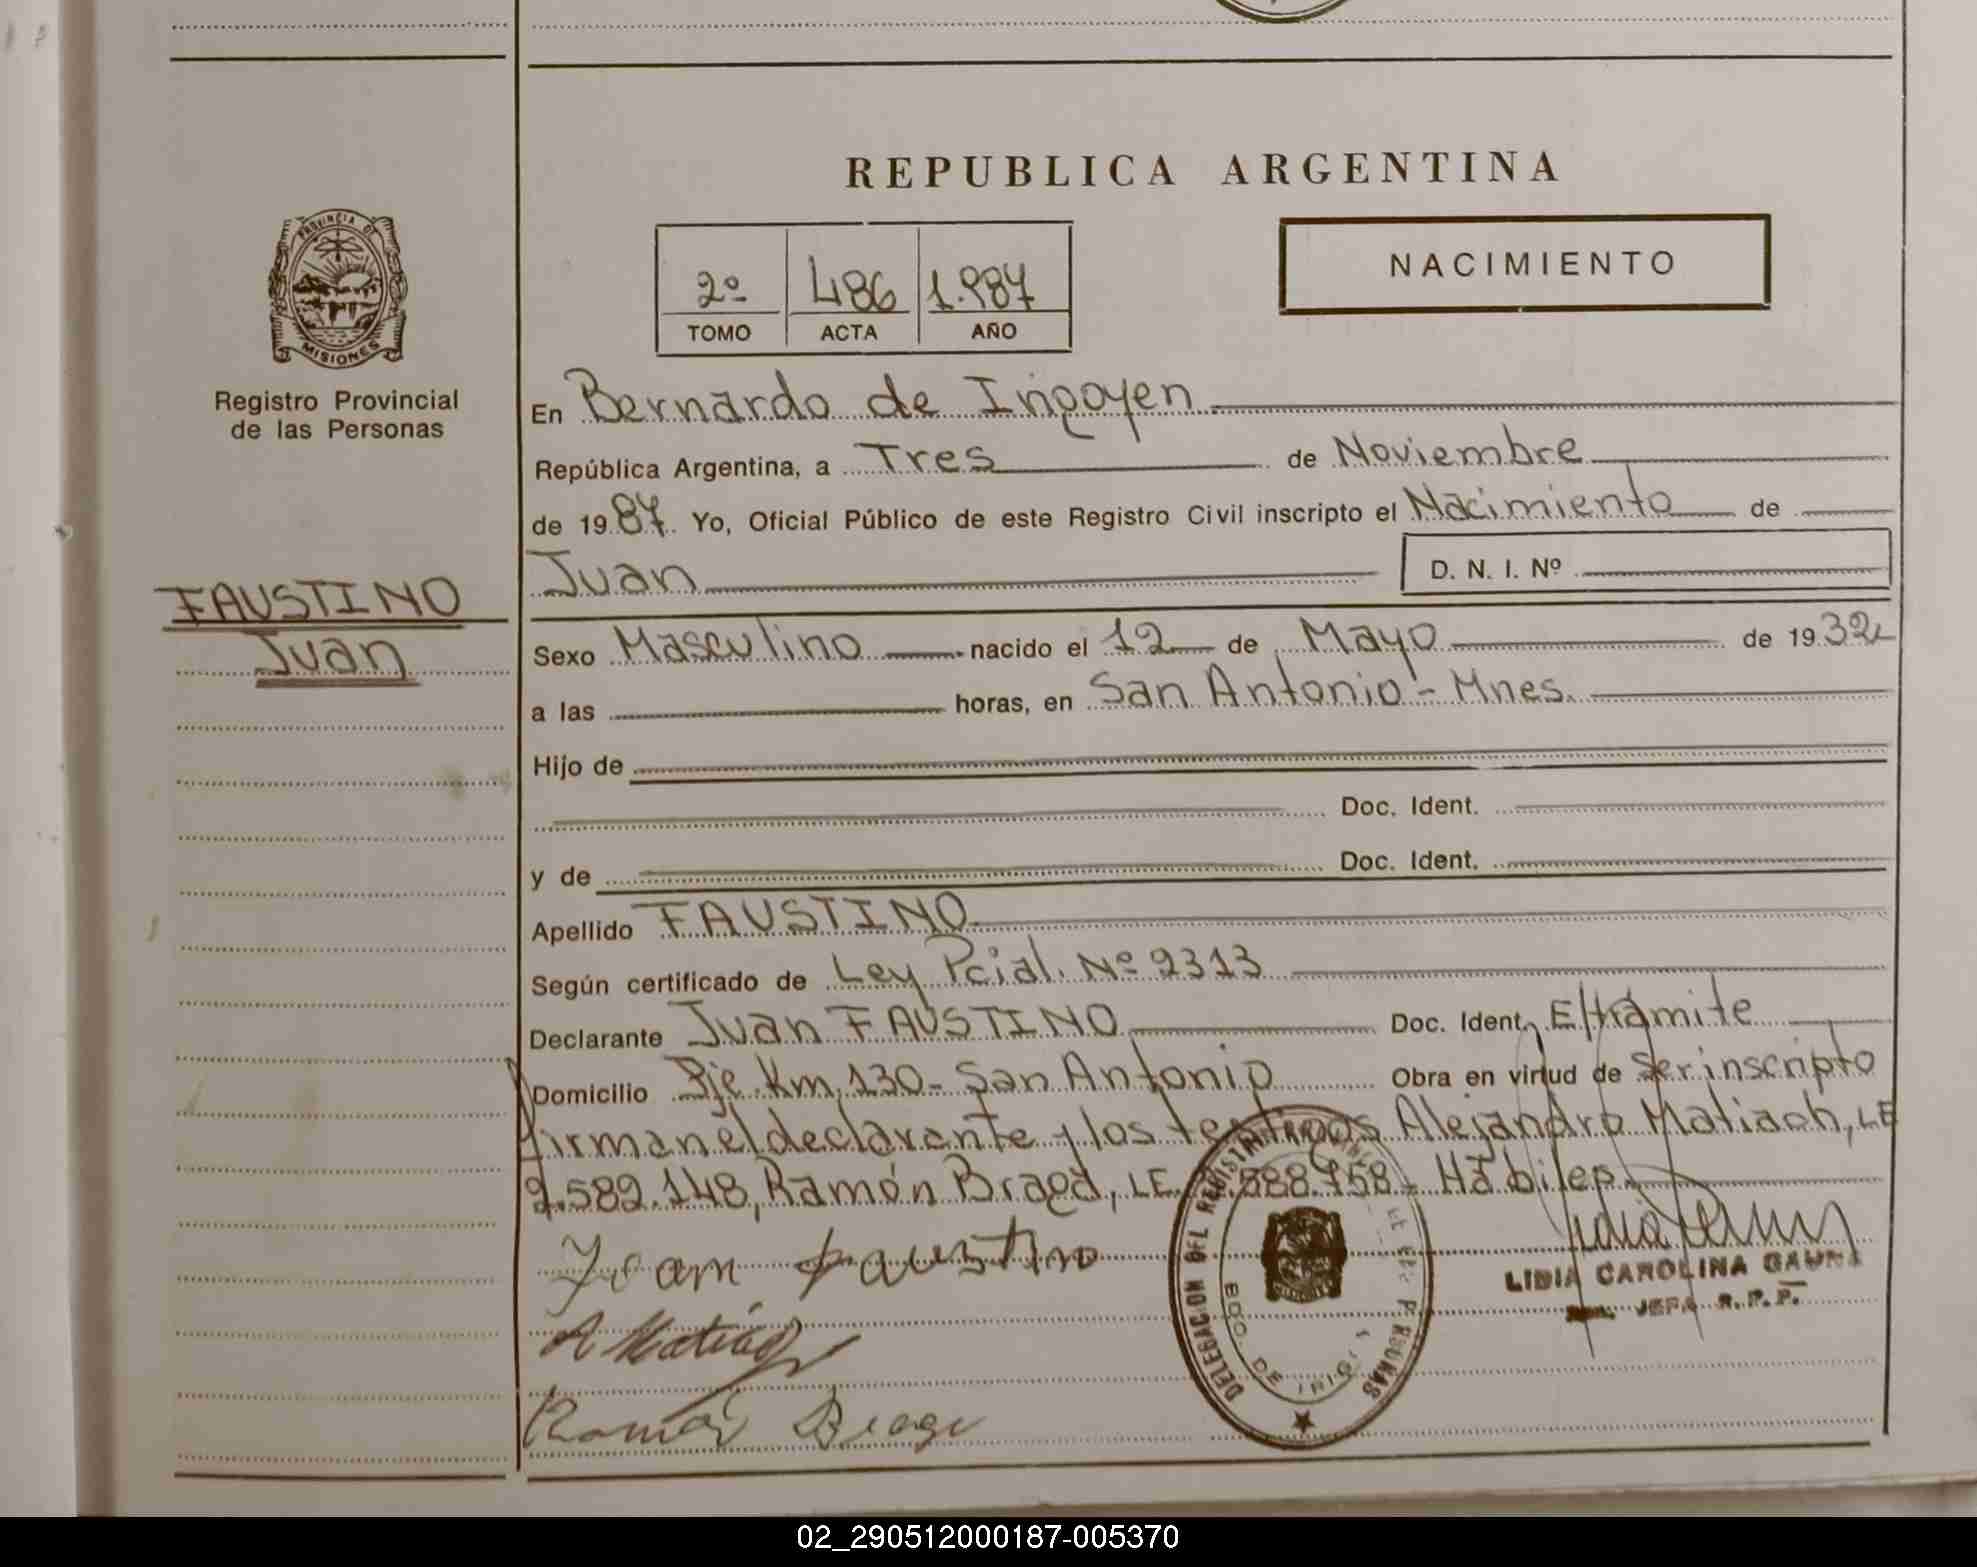 REPUBLICA ARGENTINA
PROVINCIA DE
MISIONES
Registro Provincial
de las Personas
2º 486 1.987
TOMO ACTA AÑO
NACIMIENTO
En Bernardo de Irigoyen
República Argentina, a Tres de Noviembre
de 1987 Yo, Oficial Público de este Registro Civil inscripto el Nacimiento de
Juan D. N. I. Nº
FAUSTINO
Juan
Sexo Masculino nacido el 12 de Mayo de 1932
a las horas, en San Antonio - Mnes.
Hijo de
Doc. Ident.
y de Doc. Ident.
Apellido FAUSTINO
Según certificado de Ley Pcial. Nº 2313
Declarante Juan FAUSTINO Doc. Ident. E/trámite
Domicilio Pje. Km. 130 - San Antonio Obra en virtud de ser inscripto
firman el declarante y los testigos Alejandro Matiach, LE
Ramón Braga, LE. 588.758 - Hábiles
Juan Faustino
LIDIA CAROLINA GAUNA
JEFA R. P. P.
A Matiach
Ramón Braga
DELEGACION DEL REGISTRO DE LAS PERSONAS
BDO. DE IRIG.
02_290512000187-005370